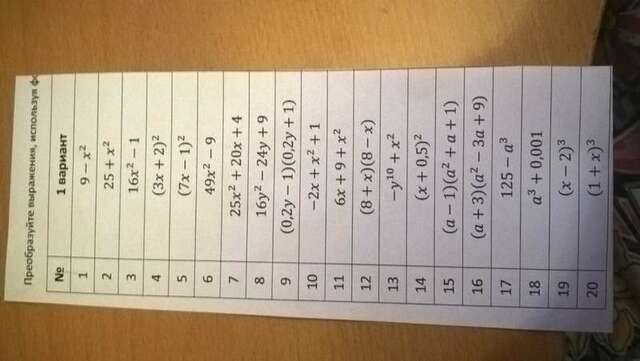 Преобразуйте выражения, используя ф
№ 1 вариант
1 9 − x²
2 25 + x²
3 16x² − 1
4 (3x + 2)²
5 (7x − 1)²
6 49x² − 9
7 25x² + 20x + 4
8 16y² − 24y + 9
9 (0,2y − 1)(0,2y + 1)
10 −2x + x² + 1
11 6x + 9 + x²
12 (8 + x)(8 − x)
13 −y¹⁰ + x²
14 (x + 0,5)²
15 (a − 1)(a² + a + 1)
16 (a + 3)(a² − 3a + 9)
17 125 − a³
18 a³ + 0,001
19 (x − 2)³
20 (1 + x)³